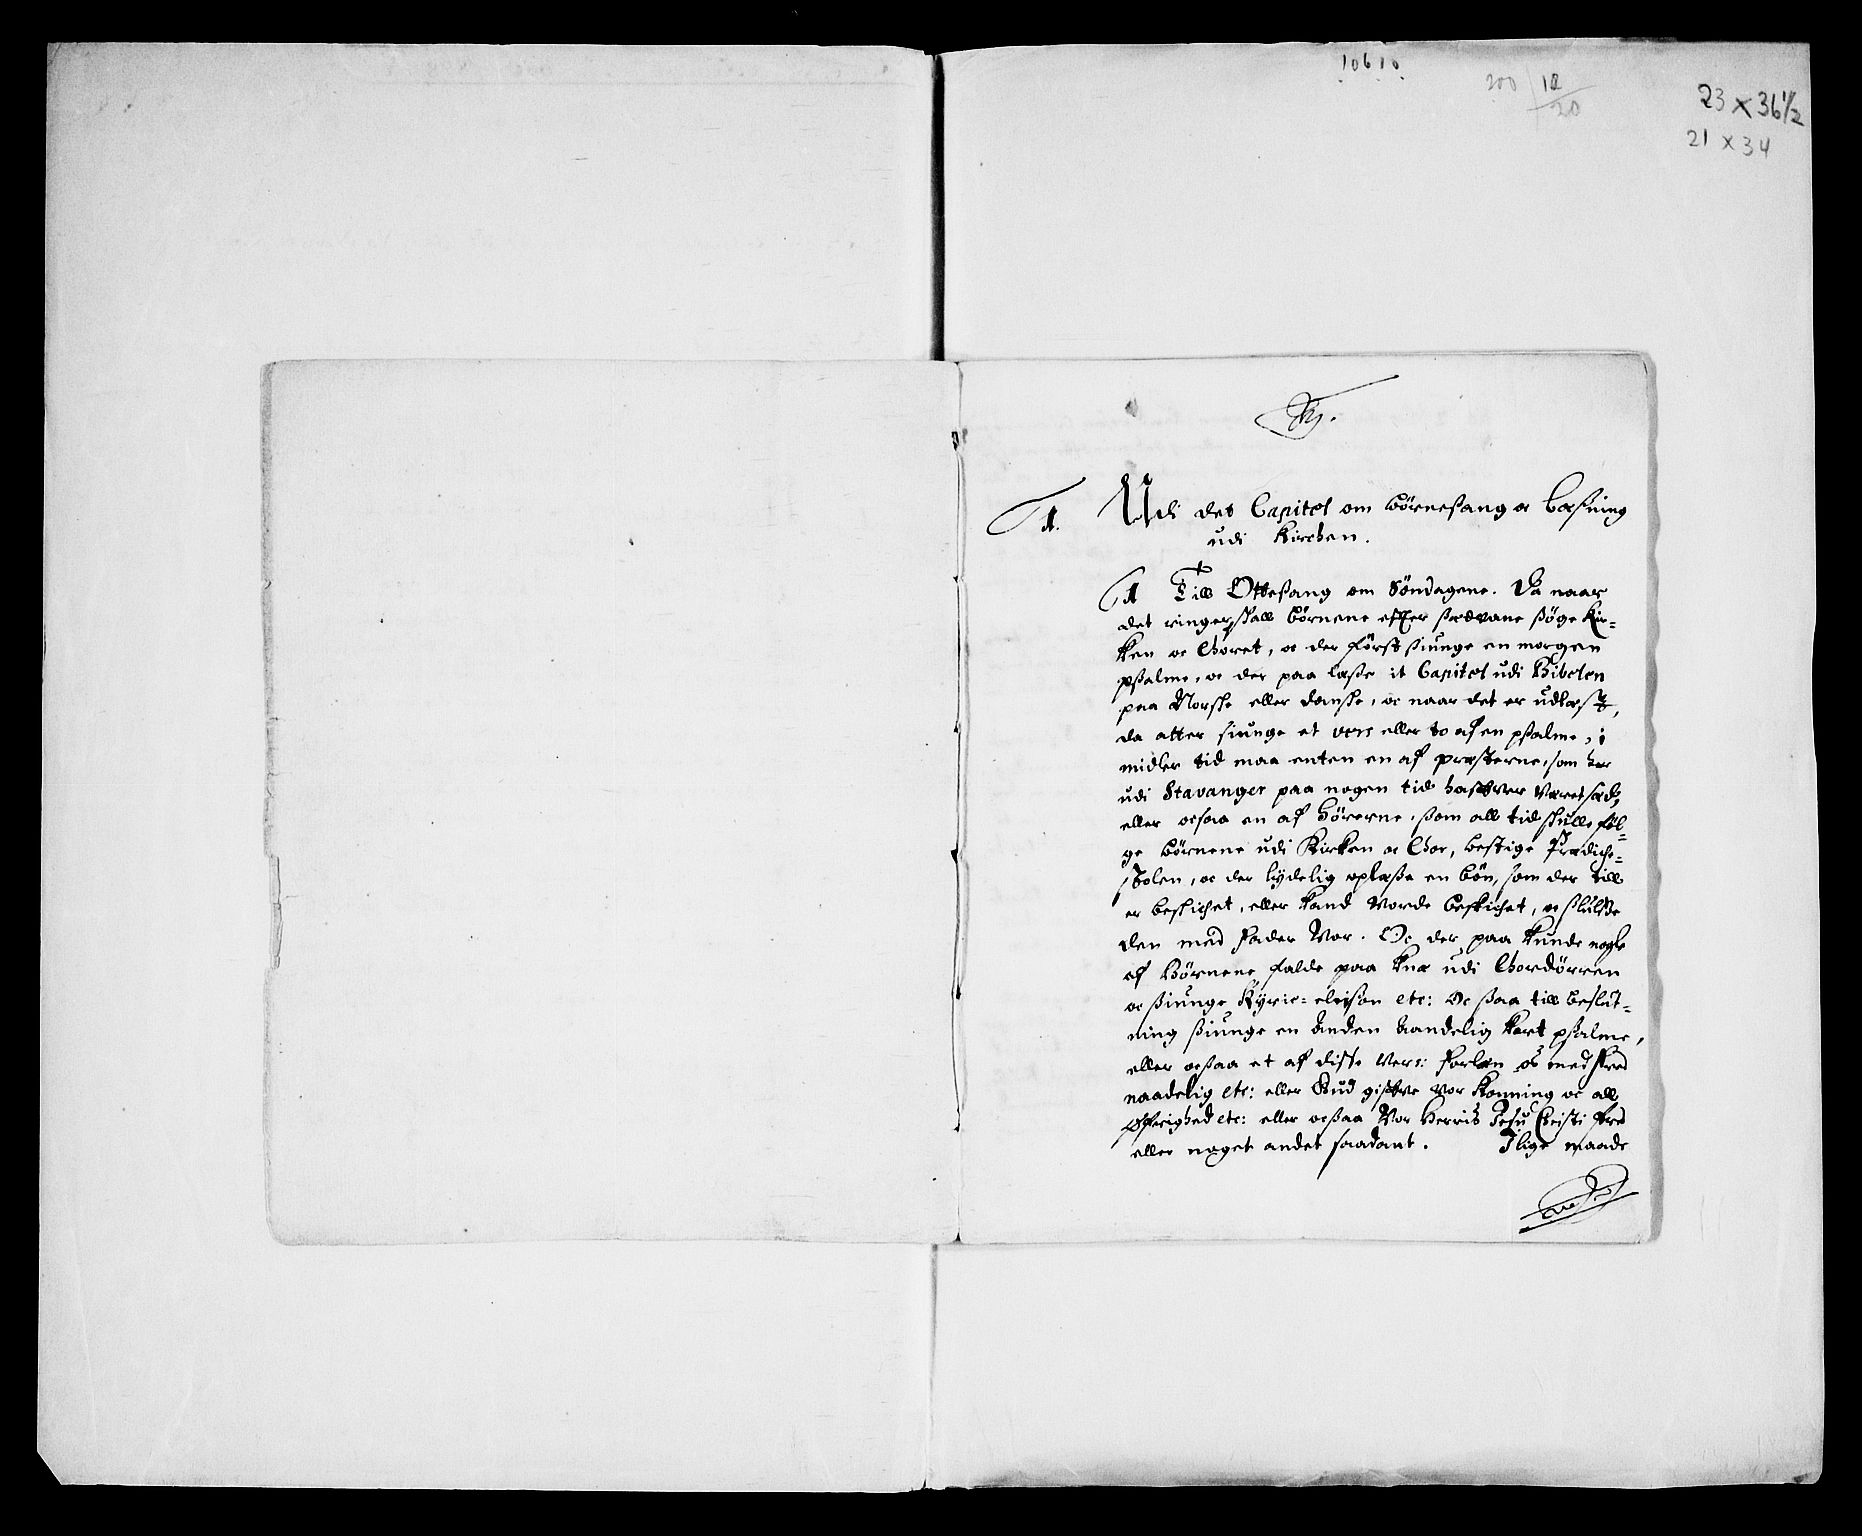 10610
200 | 10
20
23 x 36 1/2
21 x 34
1. Udi det Capitel om börnesang oc Læsning
udi Kirchen.
1 Till Ottesang om Söndagene. Da naar
det ringer, skall börnene efter sædvane söge Kir-
ken oc Choret, oc der först siunge en morgen
psalme, oc der paa læse it Capitel udi Bibelen
paa Norske eller danske, oc naar det er udlæst,
da atter siunge et vers eller to af en psalme, i
midler tid maa enten en af præsterne, som her
udi Stavanger paa nogen tid haffver været sæd,
eller ocsaa en af Hörerne, som all tid skulle föl-
ge börnene udi Kirken oc Chor, bestige Prædiche-
stolen, oc der lydelig oplæse en bön, som der till
er beskichet, eller kand vorde beskichet, oc slutte
den med Fader Vor. Oc der paa kunde nogle
af Börnene falde paa knæ udi Chordörren
oc siunge Kyrie-eleison etc: Oc saa till beslut-
ning siunge en anden Aandelig kort psalme,
eller ocsaa et af disse vers: Forlæn os med fred
naadelig etc: eller Gud giffve vor Konning oc all
öfrighed etc: eller ocsaa Vor Herris Jesu Christi fred
eller noget andet saadant. Ilige maade